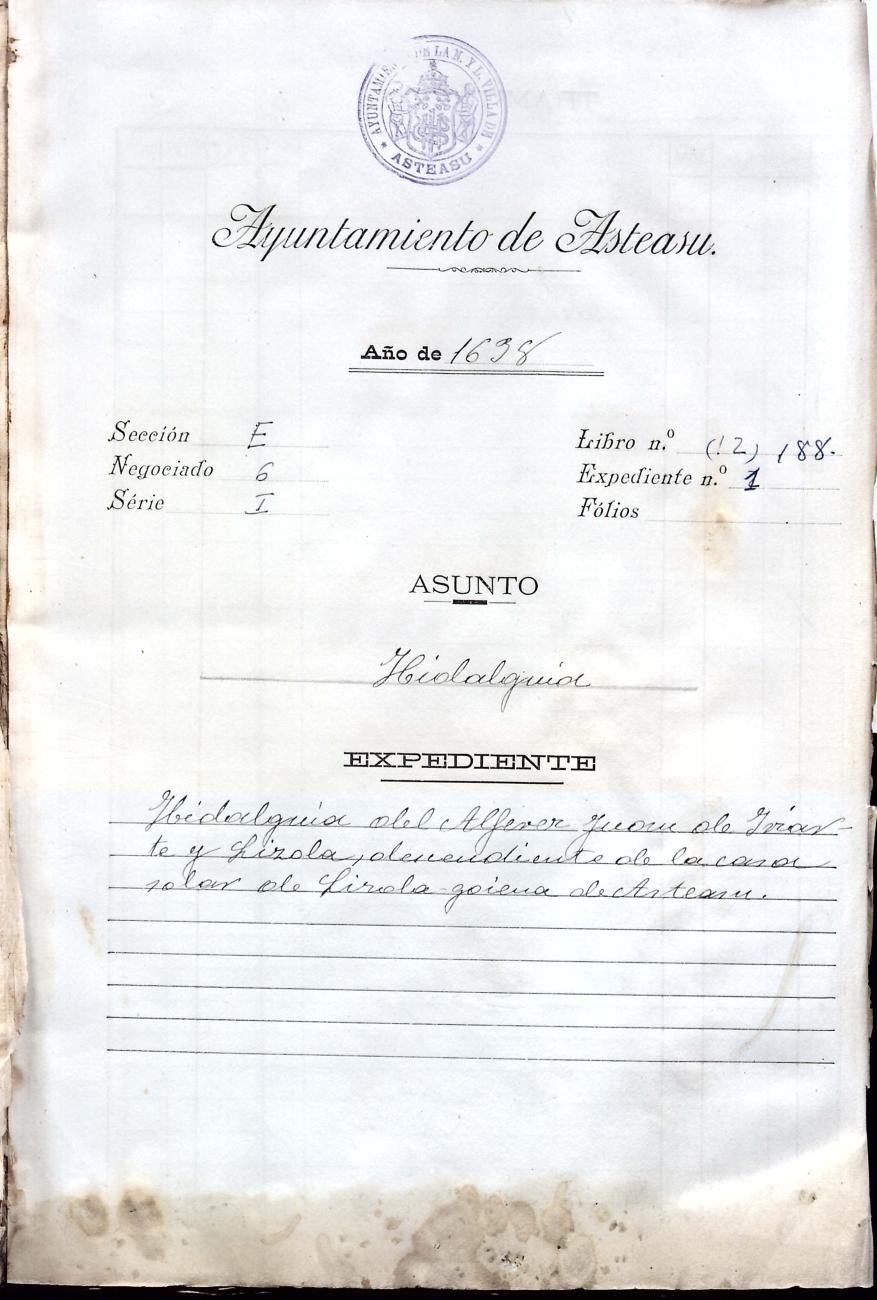 AYUNTAMIENTO DE LA N. Y L. VILLA DE
* ASTEASU *
Ayuntamiento de Asteasu.
Año de 1638
Sección E
Negociado 6
Série I
Libro n.º (12) 188.
Expediente n.º 1
Fólios
ASUNTO
Hidalguia
EXPEDIENTE
Hidalguia del Alferez Juan de Iriar-
te y Lizola, descendiente de la casa
solar de Lizola-goiena de Asteasu.